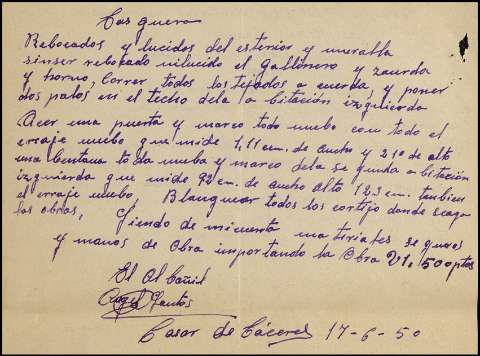 Casquero
Rebocados y lucidos del esterior y muralla
sinser rebocado nilucido el gallinero y zaurda
y horno, Correr todos los tejados a cuerda, y poner
dos palos en el techo dela a bitación izquierda
Acer una puerta y marco todo nuebo con todo el
erraje nuebo que mide 1,11 cm. de ancho y 210 de alto
una bentana toda nueba y marco dela se gunda a bitación
izquierda que mide 92 cm. de ancho alto 123 cm. tanbien
el erraje nuebo, Blanquear todos los cortijo donde seaga
las obras, Siendo de mi cuenta materiales
y manos de Obra importando la Obra 21.500 ptas
El Albañil
Angel Santos
Casar de Cáceres 17-6-50